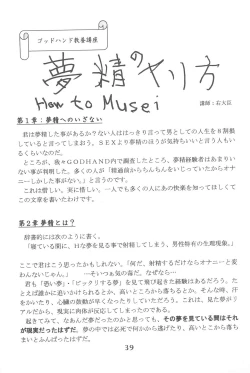 ゴッドハンド教養講座
夢精のヤリ方
How to Musei
講師：右大臣
第1章：夢精へのいざない
君は夢精した事があるか？ない人ははっきり言って男としての人生を8割損
していると言ってしまおう。SEXより夢精のほうが気持ちいいと言う人もい
るくらいなのだ。
ところが、我々GODHAND内で調査したところ、夢精経験者はあまりい
ない事が判明した。多くの人が「精通前からちんちんをいじっていたからオナ
ニーしかした事がない。」と言うのです。
これは惜しい。実に惜しい。一人でも多くの人にあの快楽を知ってほしくて
この文章を書いたわけです。
第2章夢精とは？
辞書的には次のように書く。
「寝ている間に、Hな夢を見る事で射精してしまう、男性特有の生理現象。」
ここで君はこう思ったかもしれない。「何だ、射精するだけならオナニーと変
わんないじゃん。」 …そいつぁ気の毒だ。なぜなら…
君も「恐い夢」・「ビックリする夢」を見て飛び起きた経験はあるだろう。た
とえば誰かに追いかけられるとか、高いところから落ちるとか。そんな時、汗
をかいたり、心臓の鼓動が早くなったりしていただろう。これは、見た夢がリ
アルだから、現実に肉体が反応してしまったのである。
起きてみて、なあんだ夢だったのかと思っても、その夢を見ている間はそれ
が現実だったはずだ。夢の中では必死で何かから逃げたり、高いところから落ち
まいとふんばったはずだ。
39